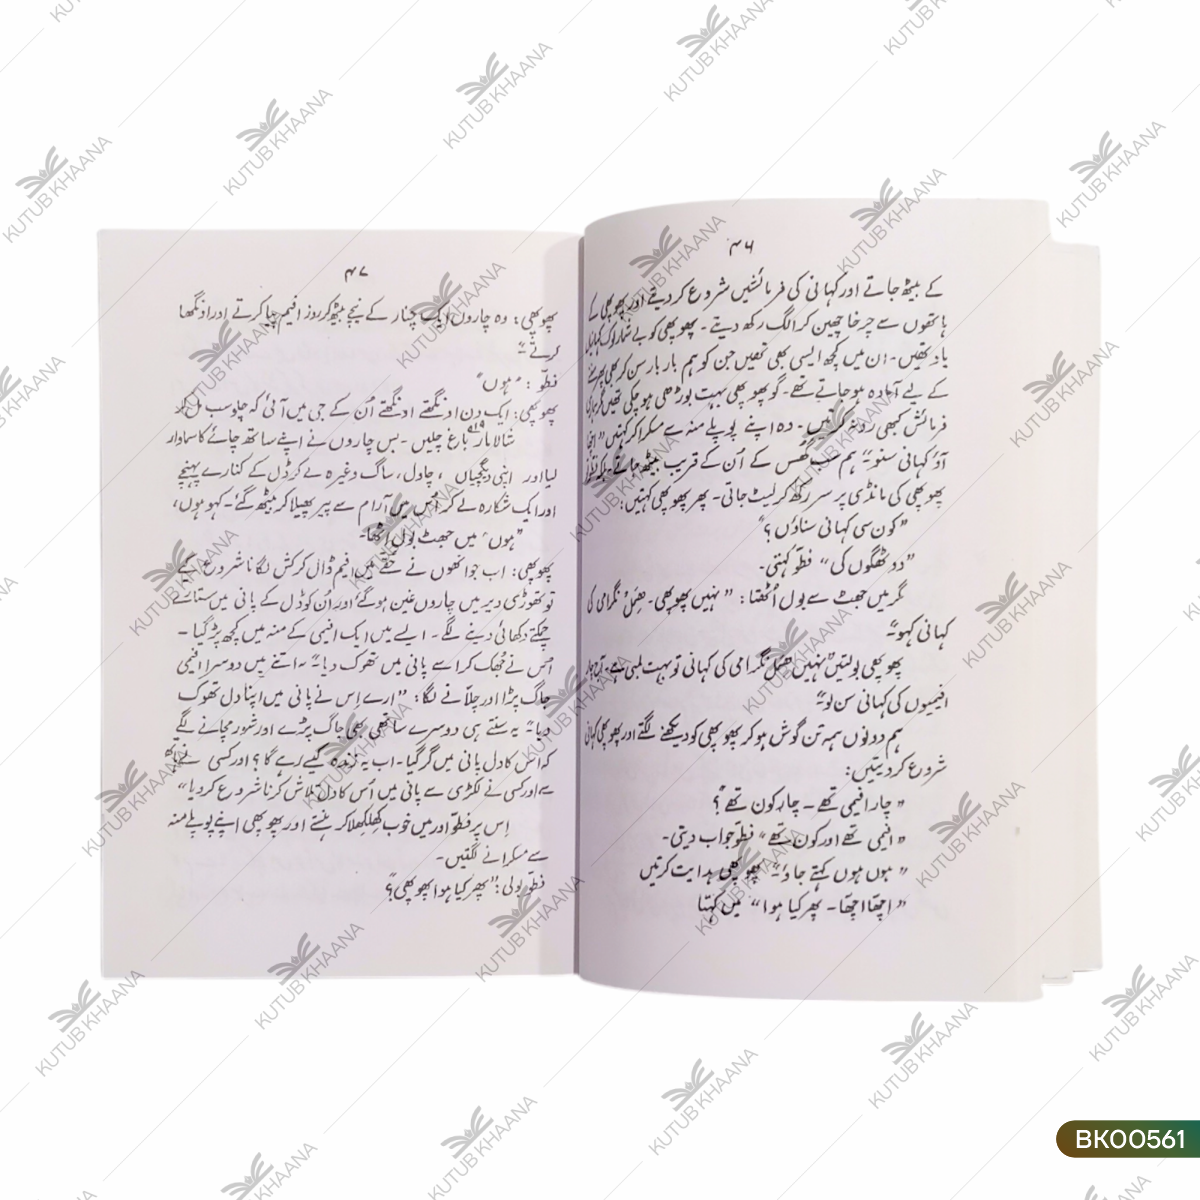 ۴۶
کے بیٹھ جاتے اور کہانی کی فرمائشیں شروع کر دیتے اور پھوپھی کے
ہاتھوں سے چرخا چھین کر الگ رکھ دیتے۔ پھوپھی کو بے شمار لوک کہانیاں
یاد تھیں۔ ان میں کچھ ایسی بھی تھیں جن کو ہم بار بار سن کر بھی پھر سننے
کے لیے آمادہ ہو جاتے تھے۔ گو پھوپھی بہت بوڑھی ہو چکی تھیں مگر ہماری
فرمائش کبھی رد نہ کرتیں۔ وہ اپنے پوپلے منہ سے مسکرا کر کہتیں "اچھا
آؤ کہانی سنو" ہم سب گھس کے اُن کے قریب بیٹھ جاتے۔ بلکہ فطو
پھوپھی کی مانڈی پر سر رکھ کر لیٹ جاتی۔ پھر پھوپھی کہتیں:
"کون سی کہانی سناؤں؟"
"دو ٹھگوں کی" فطو کہتی۔
مگر میں جھٹ سے بول اُٹھتا: "نہیں پھوپھی۔ ھیمل نگرامی کی
کہانی کہو"۔
پھوپھی بولتیں "نہیں ھیمل نگرامی کی کہانی تو بہت لمبی ہے۔ آج چار
افیمیوں کی کہانی سن لو"
ہم دونوں ہمہ تن گوش ہو کر پھوپھی کو دیکھنے لگتے اور پھوپھی کہانی
شروع کر دیتیں:
"چار افیمی تھے۔ چار کون تھے؟"
"افیمی تھے اور کون تھے" فطو جواب دیتی۔
"ہوں ہوں کہتے جاؤ" پھوپھی ہدایت کرتیں
"اچھا اچھا۔ پھر کیا ہوا" میں کہتا
۴۷
پھوپھی: وہ چاروں ایک چنار کے نیچے بیٹھ کر روز افیم پیا کرتے اور اونگھا
کرتے"
فطو: "ہوں"
پھوپھی: ایک دن اونگھتے اونگھتے اُن کے جی میں آئی کہ چلو سب مل کر
شالامار باغ چلیں۔ بس چاروں نے اپنے ساتھ چائے کا سماوار
لیا اور اپنی دیگچیاں، چاول، ساگ وغیرہ لے کر ڈل کے کنارے پہنچے
اور ایک شکارہ لے کر اُس میں آرام سے پیر پھیلا کر بیٹھ گئے۔ کہو ہوں،
"ہوں" میں جھٹ بول اٹھا۔
پھوپھی: اب جو انھوں نے حقے میں افیم ڈال کر کش لگانا شروع کیے
تو تھوڑی دیر میں چاروں غین ہو گئے اور اُن کو ڈل کے پانی میں ستارے
چمکتے دکھائی دینے لگے۔ ایسے میں ایک افیمی کے منہ میں کچھ پڑ گیا۔
اُس نے جُھک کر اسے پانی میں تھوک دیا"۔ اتنے میں دوسرا افیمی
جاگ پڑا اور چلاّنے لگا: "ارے اِس نے پانی میں اپنا دل تھوک
دیا" یہ سنتے ہی دوسرے ساتھی بھی جاگ پڑے اور شور مچانے لگے
کہ اس کا دل پانی میں گر گیا۔ اب یہ زندہ کیسے رہے گا؟ اور کسی نے ہاتھ
سے اور کسی نے لکڑی سے پانی میں اُس کا دل تلاش کرنا شروع کر دیا"
اِس پر فطو اور میں خوب کِھلکھلا کر ہنستے اور پھوپھی اپنے پوپلے منہ
سے مسکرانے لگتیں۔
فطو بولی: "پھر کیا ہوا پھوپھی؟"
BK00561